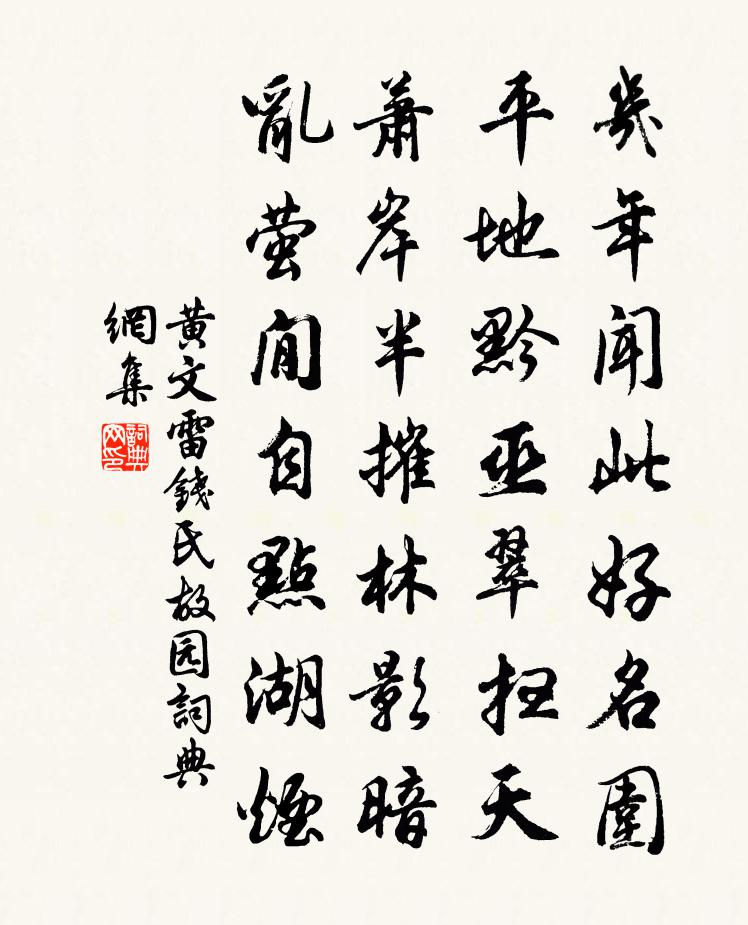 幾年聞此好名園
平地黔巫翠天
蕭岸半摧林影暗
亂萤閒自點湖煙
黃文雷錢氏故园詞典
網集
詞典
网印